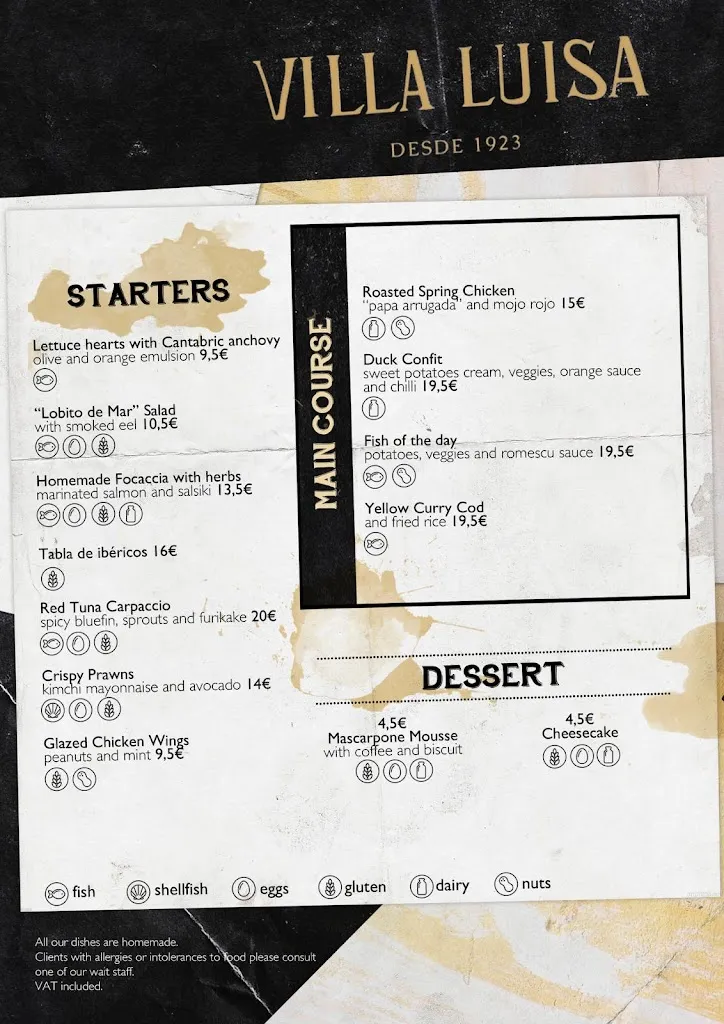 VILLA LUISA
DESDE 1923
STARTERS
Lettuce hearts with Cantabric anchovy
olive and orange emulsion 9,5€
"Lobito de Mar" Salad
with smoked eel 10,5€
Homemade Focaccia with herbs
marinated salmon and salsiki 13,5€
Tabla de ibéricos 16€
Red Tuna Carpaccio
spicy bluefin, sprouts and furikake 20€
Crispy Prawns
kimchi mayonnaise and avocado 14€
Glazed Chicken Wings
peanuts and mint 9,5€
MAIN COURSE
Roasted Spring Chicken
"papa arrugada" and mojo rojo 15€
Duck Confit
sweet potatoes cream, veggies, orange sauce
and chilli 19,5€
Fish of the day
potatoes, veggies and romescu sauce 19,5€
Yellow Curry Cod
and fried rice 19,5€
DESSERT
4,5€
Mascarpone Mousse
with coffee and biscuit
4,5€
Cheesecake
fish shellfish eggs gluten dairy nuts
All our dishes are homemade.
Clients with allergies or intolerances to food please consult
one of our wait staff.
VAT included.